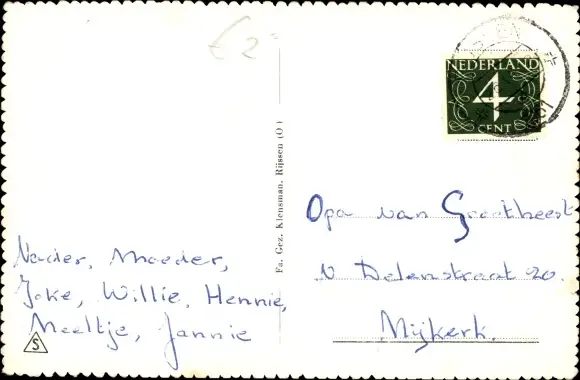 € 2
NEDERLAND
4
CENT
Fa. Gez. Klensman, Rijssen (O)
Opa van Grootheest
v Delenstraat 20.
Nijkerk.
Vader, Moeder,
Joke, Willie, Hennie,
Meeltje, Jannie
S